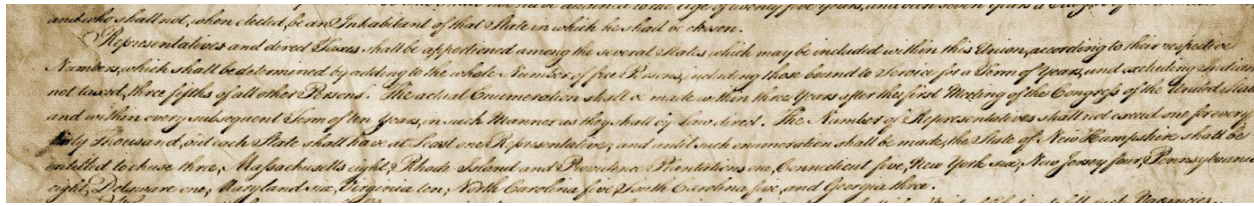 been seven Years a
and who shall not, when elected, be an Inhabitant of that State in which he shall be chosen.
Representatives and direct Taxes shall be apportioned among the several States which may be included within this Union, according to their respective
Numbers, which shall be determined by adding to the whole Number of free Persons, including those bound to Service for a Term of Years, and excluding Indians
not taxed, three fifths of all other Persons. The actual Enumeration shall be made within three Years after the first Meeting of the Congress of the United States
and within every subsequent Term of ten Years, in such Manner as they shall by Law direct. The Number of Representatives shall not exceed one for every
thirty Thousand, but each State shall have at Least one Representative; and until such enumeration shall be made, the State of New Hampshire shall be
entitled to chuse three, Massachusetts eight, Rhode Island and Providence Plantations one, Connecticut five, New York six, New Jersey four, Pennsylvania
eight, Delaware one, Maryland six, Virginia ten, North Carolina five, South Carolina five, and Georgia three.
such Vacancies